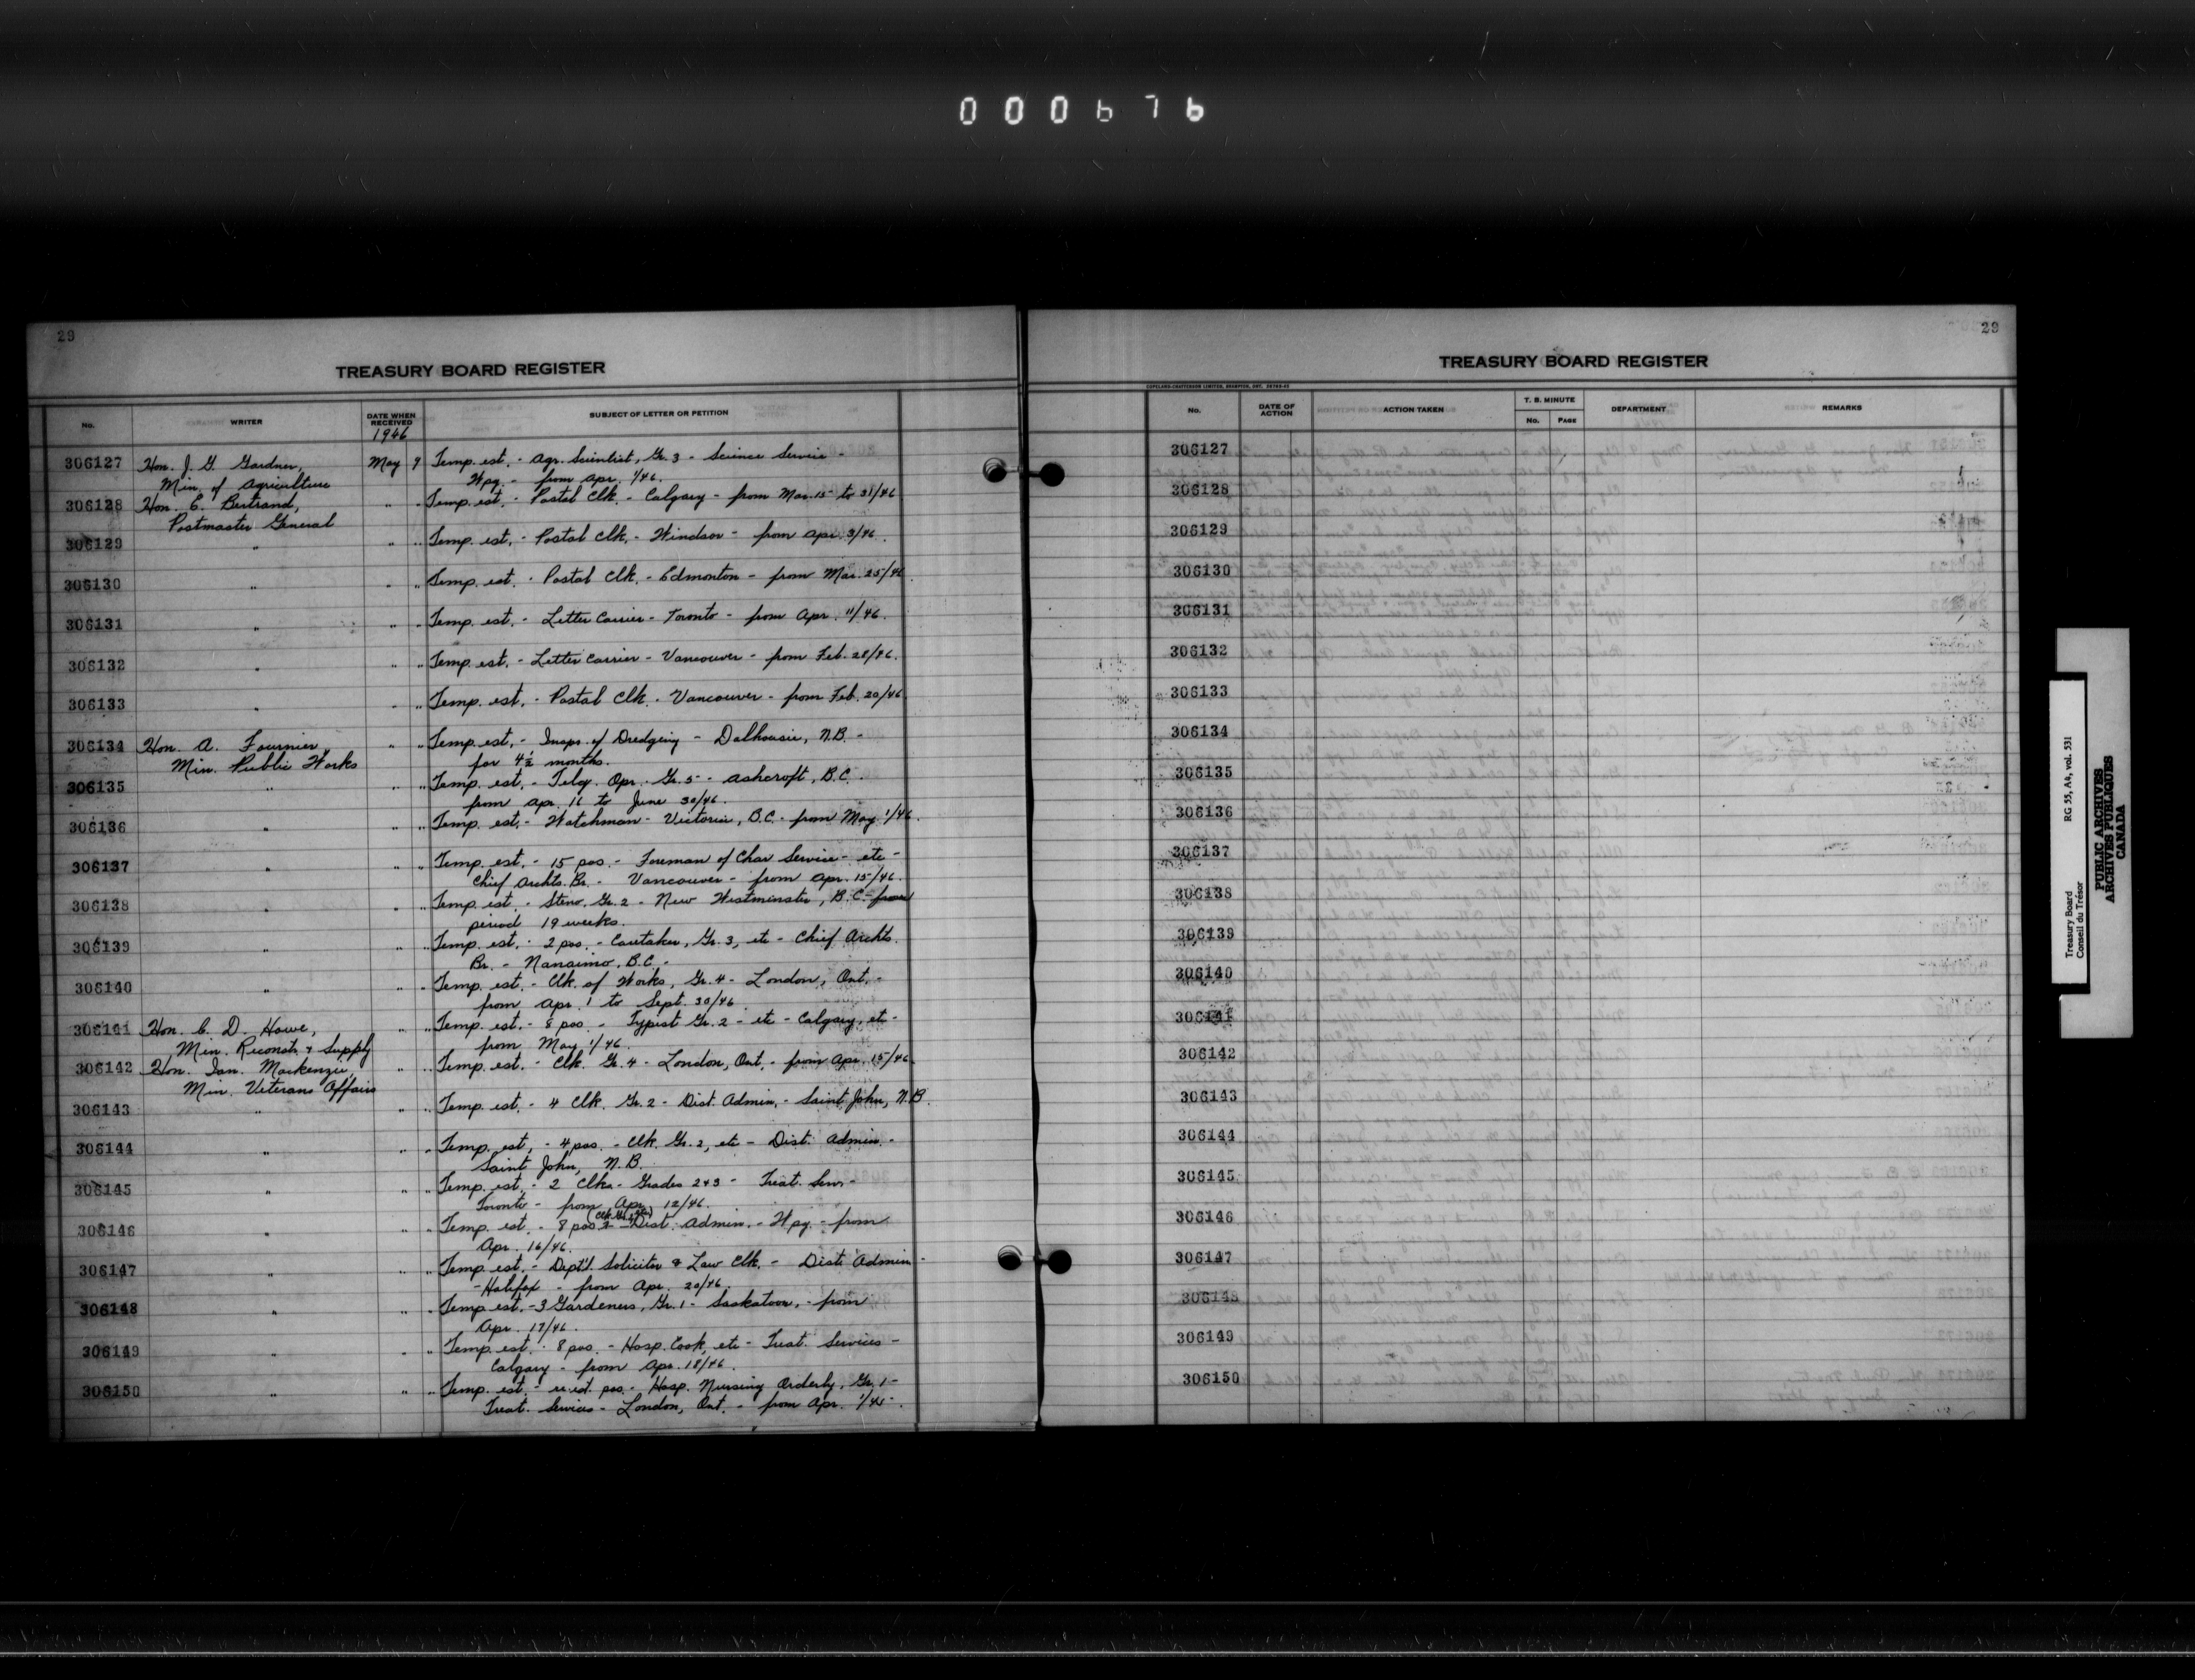 000676
29
TREASURY BOARD REGISTER
No. WRITER DATE WHEN RECEIVED SUBJECT OF LETTER OR PETITION
1946
306127 Hon. J. G. Gardner, May 9 Temp. est. - Agr. Scientist, Gr. 3 - Science Service -
Min. of Agriculture Wpg. - from Apr. 1/46.
306128 Hon. E. Bertrand, " " Temp. est. - Postal Clk. - Calgary - from Mar. 15 to 31/46
Postmaster General
306129 " " " Temp. est. - Postal Clk. - Windsor - from Apr. 3/46.
306130 " " " Temp. est. - Postal Clk. - Edmonton - from Mar. 25/46.
306131 " " " Temp. est. - Letter Carrier - Toronto - from Apr. 11/46.
306132 " " " Temp. est. - Letter Carrier - Vancouver - from Feb. 28/46.
306133 " " " Temp. est. - Postal Clk. - Vancouver - from Feb. 20/46
306134 Hon. A. Fournier, " " Temp. est. - Inspr. of Dredging - Dalhousie, N.B. -
Min. Public Works for 4½ months.
306135 " " " Temp. est. - Telegr. Opr. Gr. 5 - Ashcroft, B.C.
from Apr. 16 to June 30/46.
306136 " " " Temp. est. - Watchman - Victoria, B.C. - from May 1/46.
306137 " " " Temp. est. - 15 pos. - Foreman of Char Service - etc -
Chief Archts. Br. - Vancouver - from Apr. 15/46.
306138 " " " Temp. est. - Steno. Gr. 2 - New Westminster, B.C. -
period 19 weeks.
306139 " " " Temp. est. - 2 pos. - Caretaker, Gr. 3, etc - Chief Archts.
Br. - Nanaimo, B.C. -
306140 " " " Temp. est. - Clk. of Works, Gr. 4 - London, Ont. -
from Apr. 1 to Sept. 30/46
306141 Hon. C. D. Howe, " " Temp. est. - 8 pos. - Typist Gr. 2 - etc - Calgary, etc -
Min. Reconstr. & Supply from May 1/46.
306142 Hon. Ian. Mackenzie, " " Temp. est. - Clk. Gr. 4 - London, Ont. - from Apr. 15/46.
Min. Veterans Affairs
306143 " " " Temp. est. - 4 Clk. Gr. 2 - Dist. Admin. - Saint John, N.B.
306144 " " " Temp. est. - 4 pos. - Clk. Gr. 2, etc - Dist. Admin. -
Saint John, N.B.
306145 " " " Temp. est. - 2 Clks - Grades 2 & 3 - Treat. Serv. -
Toronto - from Apr. 12/46.
306146 " " " Temp. est. - 8 pos. - Dist. Admin. - Wpg. - from
Apr. 16/46.
306147 " " " Temp. est. - Dept'l. Solicitor & Law Clk. - Dist. Admin -
- Halifax - from Apr. 20/46.
306148 " " " Temp. est. - 3 Gardeners, Gr. 1 - Saskatoon, - from
Apr. 17/46.
306149 " " " Temp. est. - 8 pos. - Hosp. Cook, etc - Treat. Services -
Calgary - from Apr. 18/46.
306150 " " " Temp. est. - pos. - Hosp. Nursing Orderly, Gr. 1 -
Treat. Services - London, Ont. - from Apr.
29
TREASURY BOARD REGISTER
COPELAND-CHATTERSON LIMITED, BRAMPTON, ONT.
No. DATE OF ACTION ACTION TAKEN T. B. MINUTE No. PAGE DEPARTMENT REMARKS
306127
306128
306129
306130
306131
306132
306133
306134
306135
306136
306137
306138
306139
306140
306141
306142
306143
306144
306145
306146
306147
306148
306149
306150
Treasury Board RG 55, A4, vol. 531
Conseil du Trésor
PUBLIC ARCHIVES
ARCHIVES PUBLIQUES
CANADA